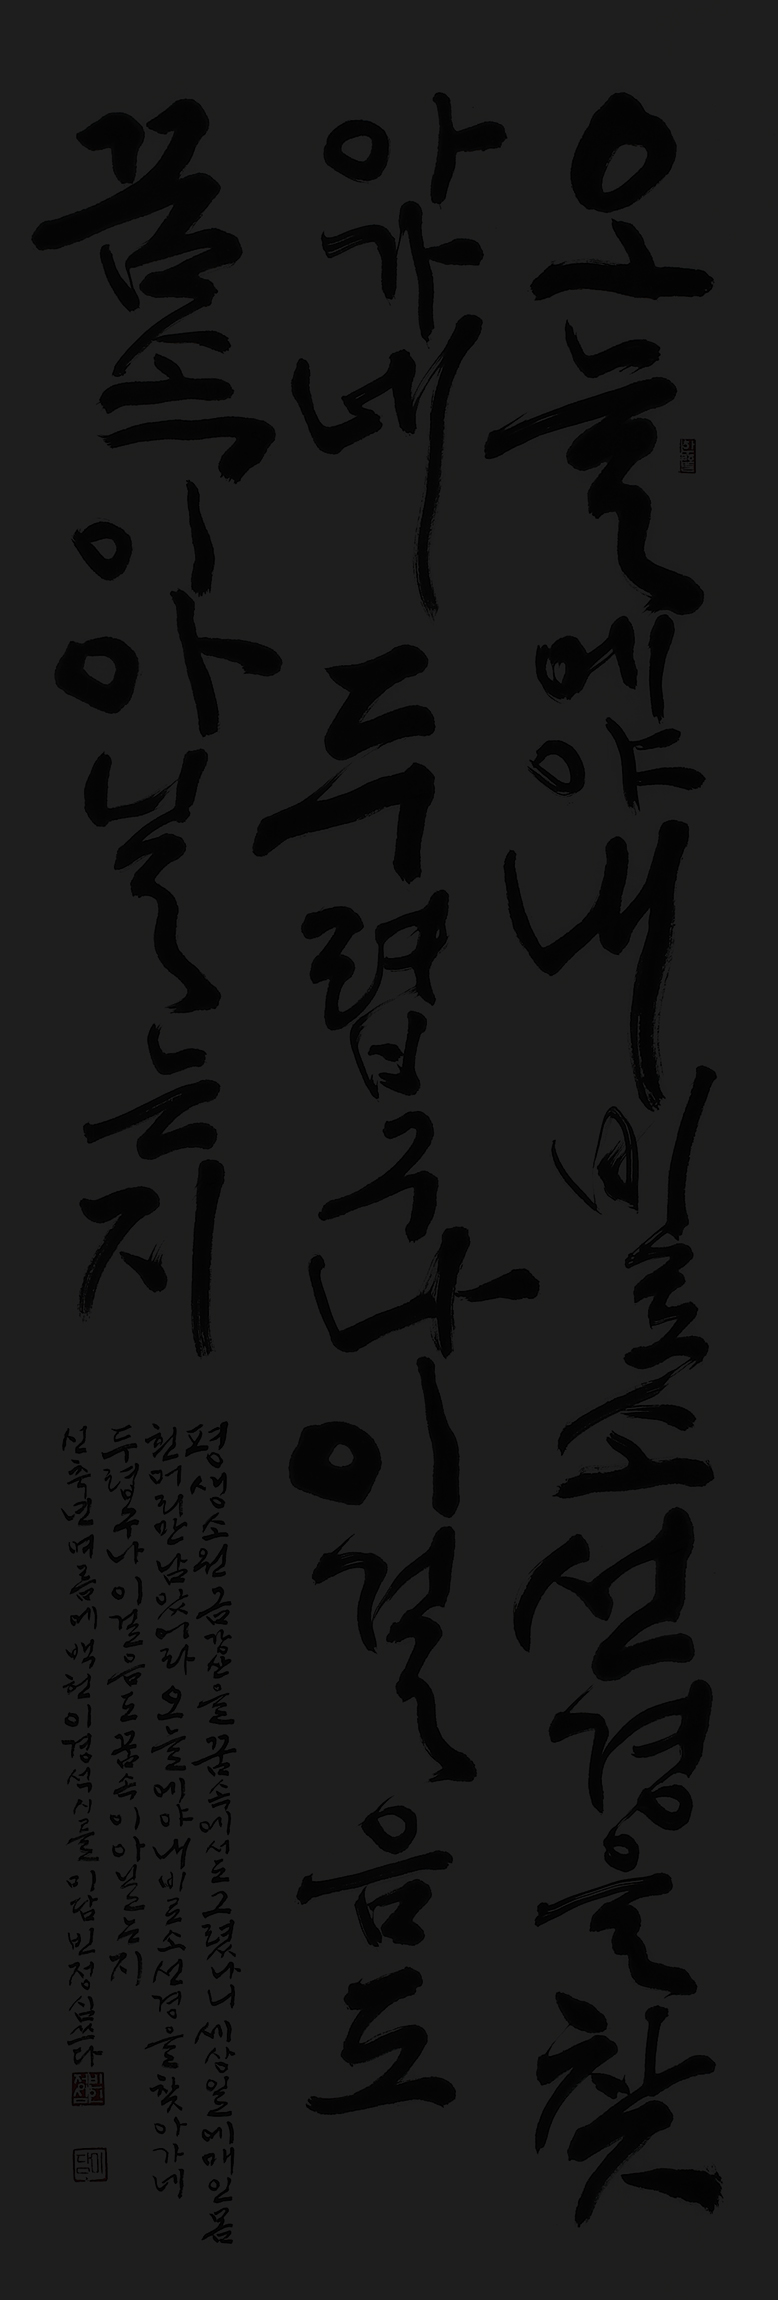 오늘에야내비로소선경을찾
아가네 두렵구나이걸음도
꿈속이아닐는지
평생소원금강산을꿈속에서도그렸나니세상일에매인몸
흰머리만남았어라오늘에야내비로소선경을찾아가네
두렵구나이걸음도꿈속이아닐는지
신축년여름에백헌이경석시를미담빈정심쓰다